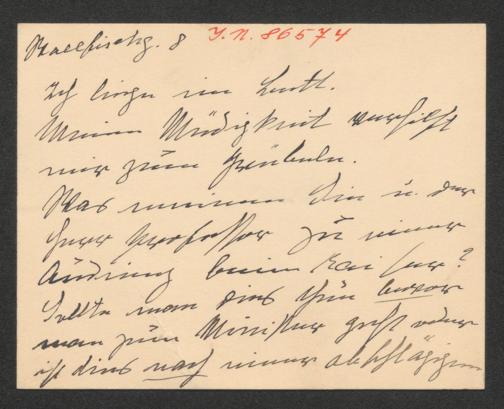 Wallfischg. 8 I.N. 86574
Ich liege im Bett.
Meine Müdigkeit verhilft
mir zum Grübeln.
Was meinen Sie u. der
Herr Professor zu einer
Audienz beim Kaiser?
Sollte man dies thun bevor
man zum Minister geht oder
ist dies nach einer abschlägigen